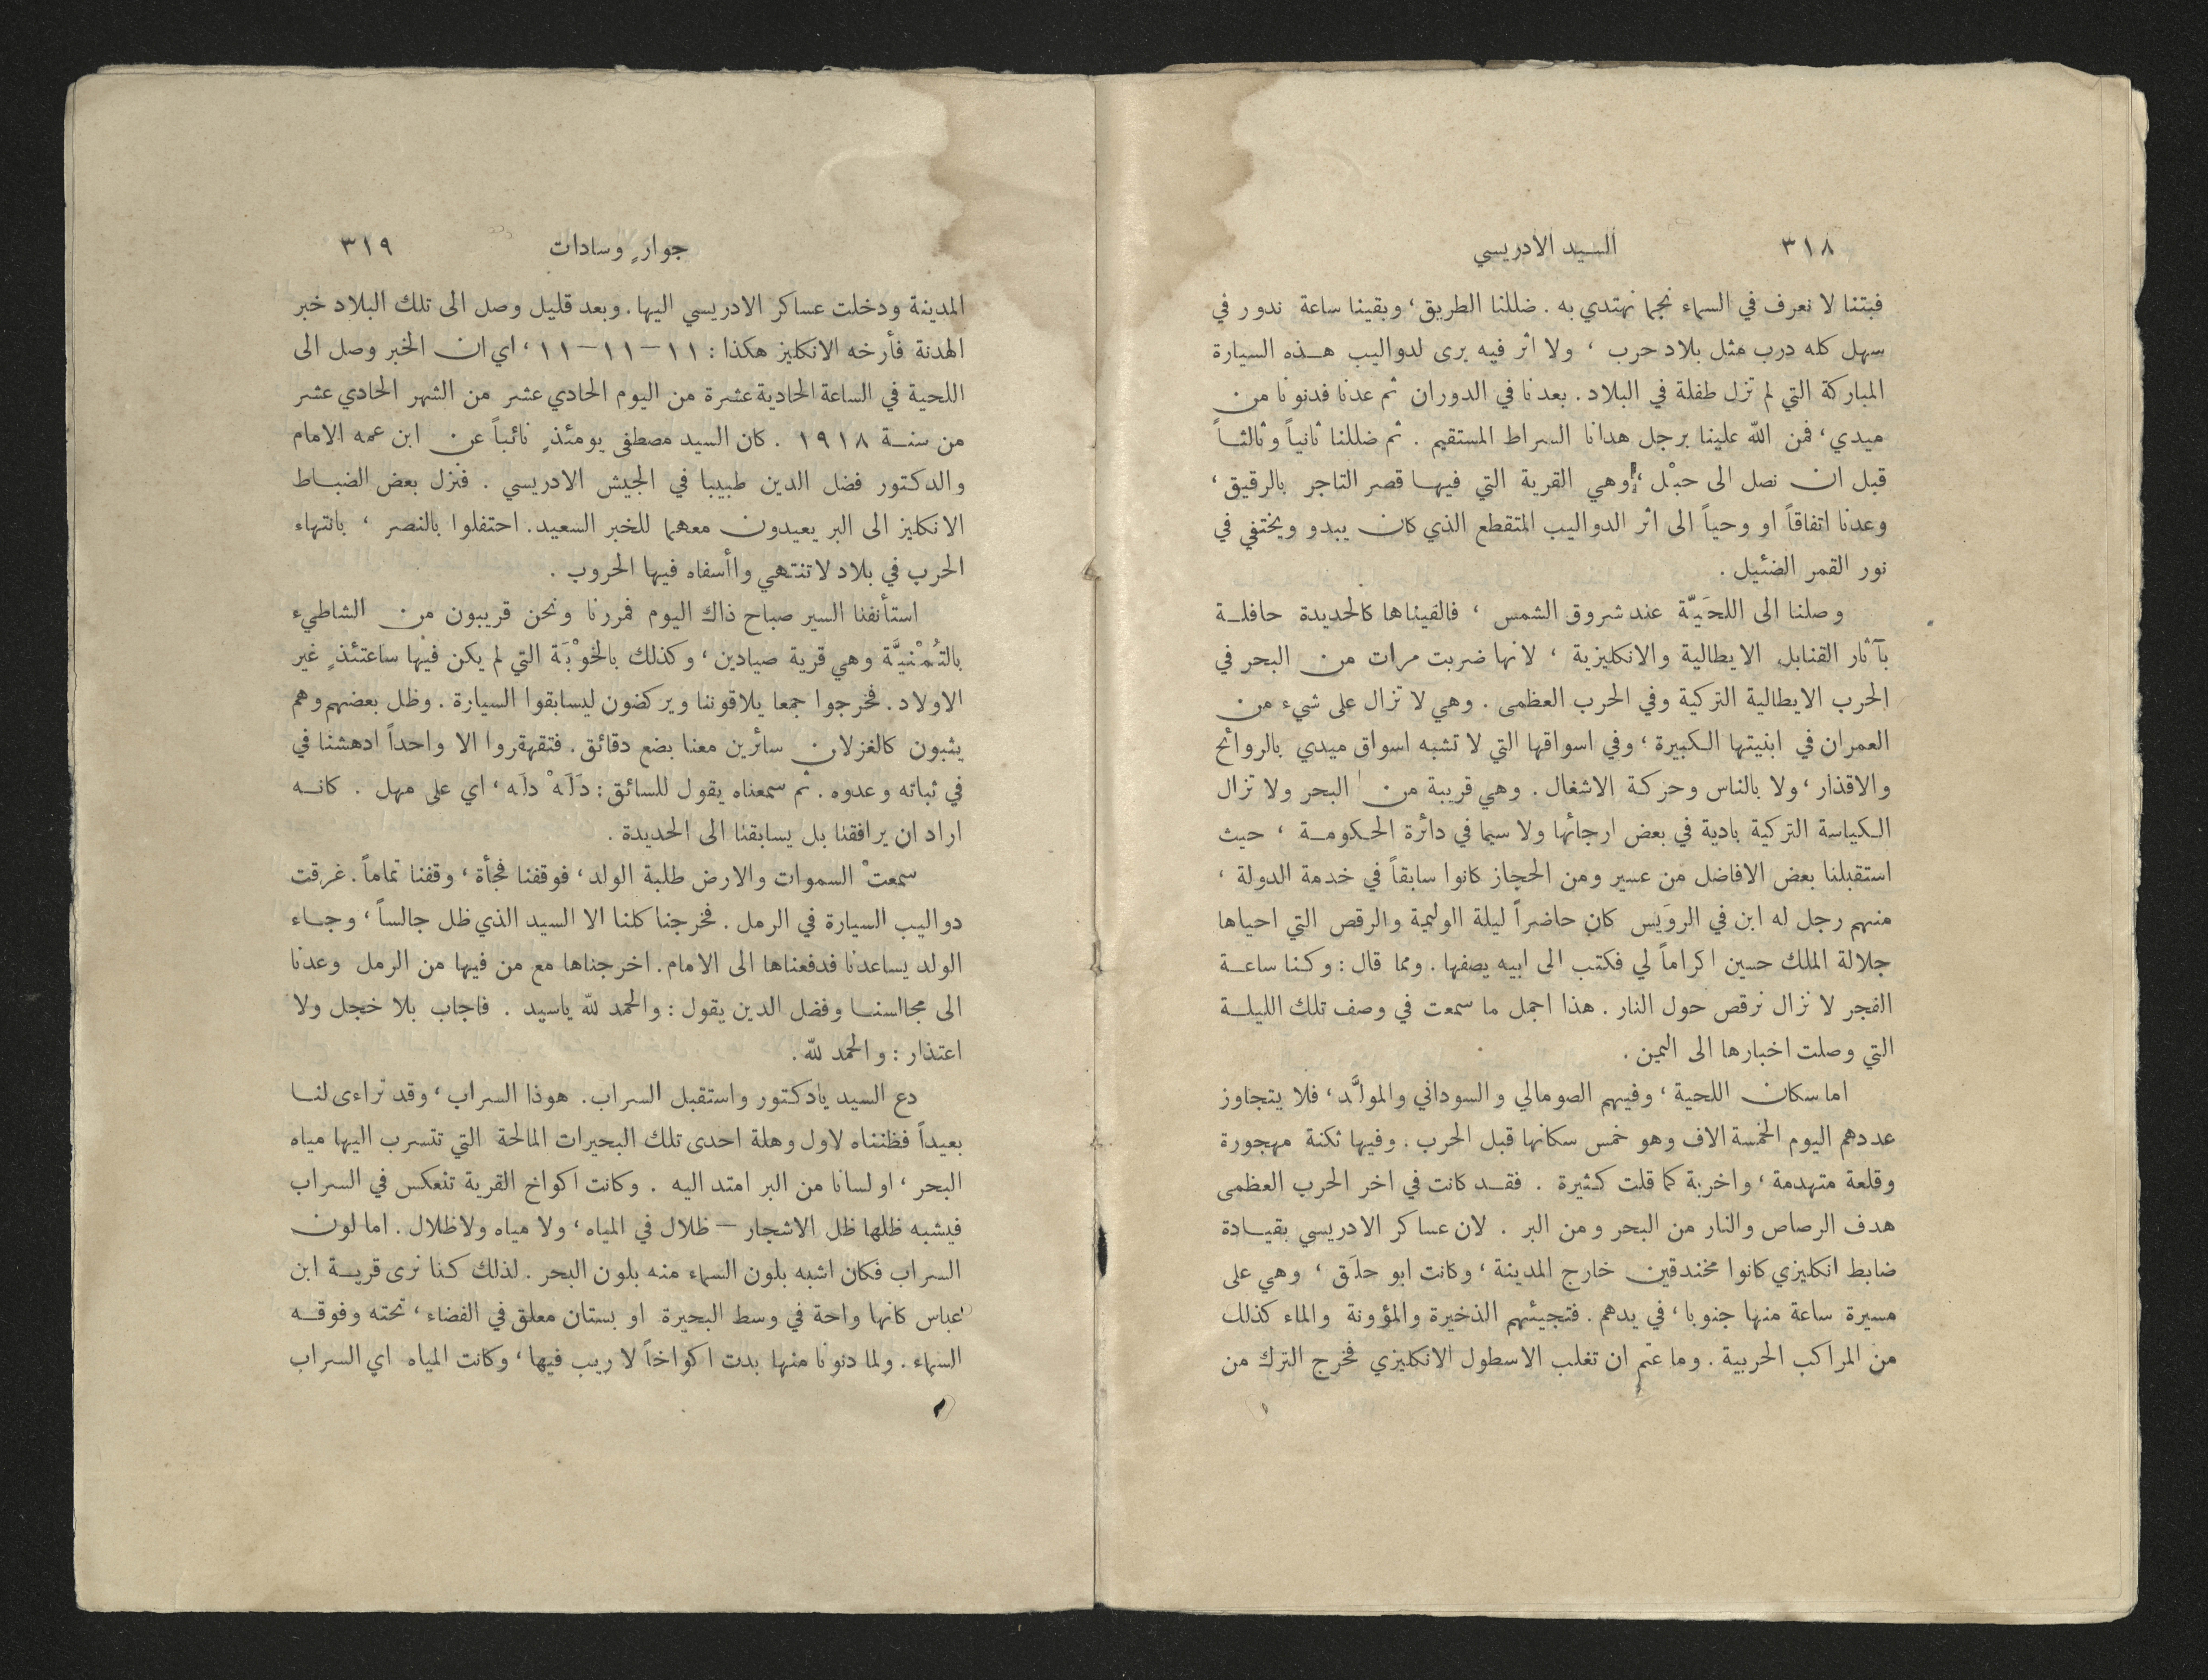 ٣١٨ السيد الادريسي
فبتنا لا نعرف في السماء نجما نهتدي به . ضللنا الطريق ، وبقينا ساعة ندور في
سهل كله درب مثل بلاد حرب ، ولا اثر فيه يرى لدواليب هذه السيارة
المباركة التي لم تزل طفلة في البلاد . بعدنا في الدوران ثم عدنا فدنونا من
ميدي ، فمن الله علينا برجل هدانا السراط المستقيم . ثم ضللنا ثانياً وثالثاً
قبل ان نصل الى حبْل ، وهي القرية التي فيها قصر التاجر بالرقيق ،
وعدنا اتفاقاً او وحياً الى اثر الدواليب المتقطع الذي كان يبدو ويختفي في
نور القمر الضئيل .
وصلنا الى اللحَيّة عند شروق الشمس ، فالفيناها كالحديدة حافلة
بآثار القنابل الايطالية والانكليزية ، لانها ضربت مرات من البحر في
الحرب الايطالية التركية وفي الحرب العظمى . وهي لا تزال على شيء من
العمران في ابنيتها الكبيرة ، وفي اسواقها التي لا تشبه اسواق ميدي بالروائح
والاقذار ، ولا بالناس وحركة الاشغال . وهي قريبة من البحر ولا تزال
الكياسة التركية بادية في بعض ارجائها ولا سيما في دائرة الحكومة ، حيث
استقبلنا بعض الافاضل من عسير ومن الحجاز كانوا سابقاً في خدمة الدولة ،
منهم رجل له ابن في الروَيس كان حاضراً ليلة الوليمة والرقص التي احياها
جلالة الملك حسين اكراماً لي فكتب الى ابيه يصفها . ومما قال : وكنا ساعة
الفجر لا نزال نرقص حول النار . هذا اجمل ما سمعت في وصف تلك الليلة
التي وصلت اخبارها الى اليمن .
اما سكان اللحية ، وفيهم الصومالي والسوداني والمولَّد ، فلا يتجاوز
عددهم اليوم الخمسة الاف وهو خمس سكانها قبل الحرب . وفيها ثكنة مهجورة
وقلعة متهدمة ، واخربة كما قلت كثيرة . فقد كانت في اخر الحرب العظمى
هدف الرصاص والنار من البحر ومن البر . لان عساكر الادريسي بقيادة
ضابط انكليزي كانوا مخندقين خارج المدينة ، وكانت ابو حلَق ، وهي على
مسيرة ساعة منها جنوبا ، في يدهم . فتجيئهم الذخيرة والمؤونة والماء كذلك
من المراكب الحربية . وما عتم ان تغلب الاسطول الانكليزي فخرج الترك من
جوارٍ وسادات ٣١٩
المدينة ودخلت عساكر الادريسي اليها . وبعد قليل وصل الى تلك البلاد خبر
الهدنة فأرخه الانكليز هكذا : ١١ – ١١ – ١١ ، اي ان الخبر وصل الى
اللحية في الساعة الحادية عشرة من اليوم الحادي عشر من الشهر الحادي عشر
من سنة ١٩١٨ . كان السيد مصطفى يومئذٍ نائباً عن ابن عمه الامام
والدكتور فضل الدين طبيبا في الجيش الادريسي . فنزل بعض الضباط
الانكليز الى البر يعيدون معهما للخبر السعيد . احتفلوا بالنصر ، بانتهاء
الحرب في بلاد لا تنتهي واأسفاه فيها الحروب .
استأنفنا السير صباح ذاك اليوم فمررنا ونحن قريبون من الشاطيء
بالتُمْنيَّة وهي قرية صيادين ، وكذلك بالخوْبَة التي لم يكن فيها ساعتئذٍ غير
الاولاد . فخرجوا جمعا يلاقوننا ويركضون ليسابقوا السيارة . وظل بعضهم وهم
يثبون كالغزلان سائرين معنا بضع دقائق . فتقهقروا الا واحداً ادهشنا في
في ثباته وعدوه . ثم سمعناه يقول للسائق : دَلَهْ دلَه ، اي على مهل . كانه
اراد ان يرافقنا بل يسابقنا الى الحديدة .
سمعتْ السموات والارض طلبة الولد ، فوقفنا فجأة ، وقفنا تماماً . غرقت
دواليب السيارة في الرمل . فخرجنا كلنا الا السيد الذي ظل جالساً ، وجاء
الولد يساعدنا فدفعناها الى الامام . اخرجناها مع من فيها من الرمل وعدنا
الى مجالسنا وفضل الدين يقول : والحمد لله ياسيد . فاجاب بلا خجل ولا
اعتذار : والحمد لله .
دع السيد يادكتور واستقبل السراب . هوذا السراب ، وقد تراءى لنا
بعيداً فظنناه لاول وهلة احدى تلك البحيرات المالحة التي تتسرب اليها مياه
البحر ، او لسانا من البر امتد اليه . وكانت اكواخ القرية تنعكس في السراب
فيشبه ظلها ظل الاشجار – ظلال في المياه ، ولا مياه ولا ظلال . اما لون
السراب فكان اشبه بلون السماء منه بلون البحر . لذلك كنا نرى قرية ابن
عباس كانها واحة في وسط البحيرة او بستان معلق في الفضاء ، تحته وفوقه
السماء . ولما دنونا منها بدت اكواخاً لا ريب فيها ، وكانت المياه اي السراب